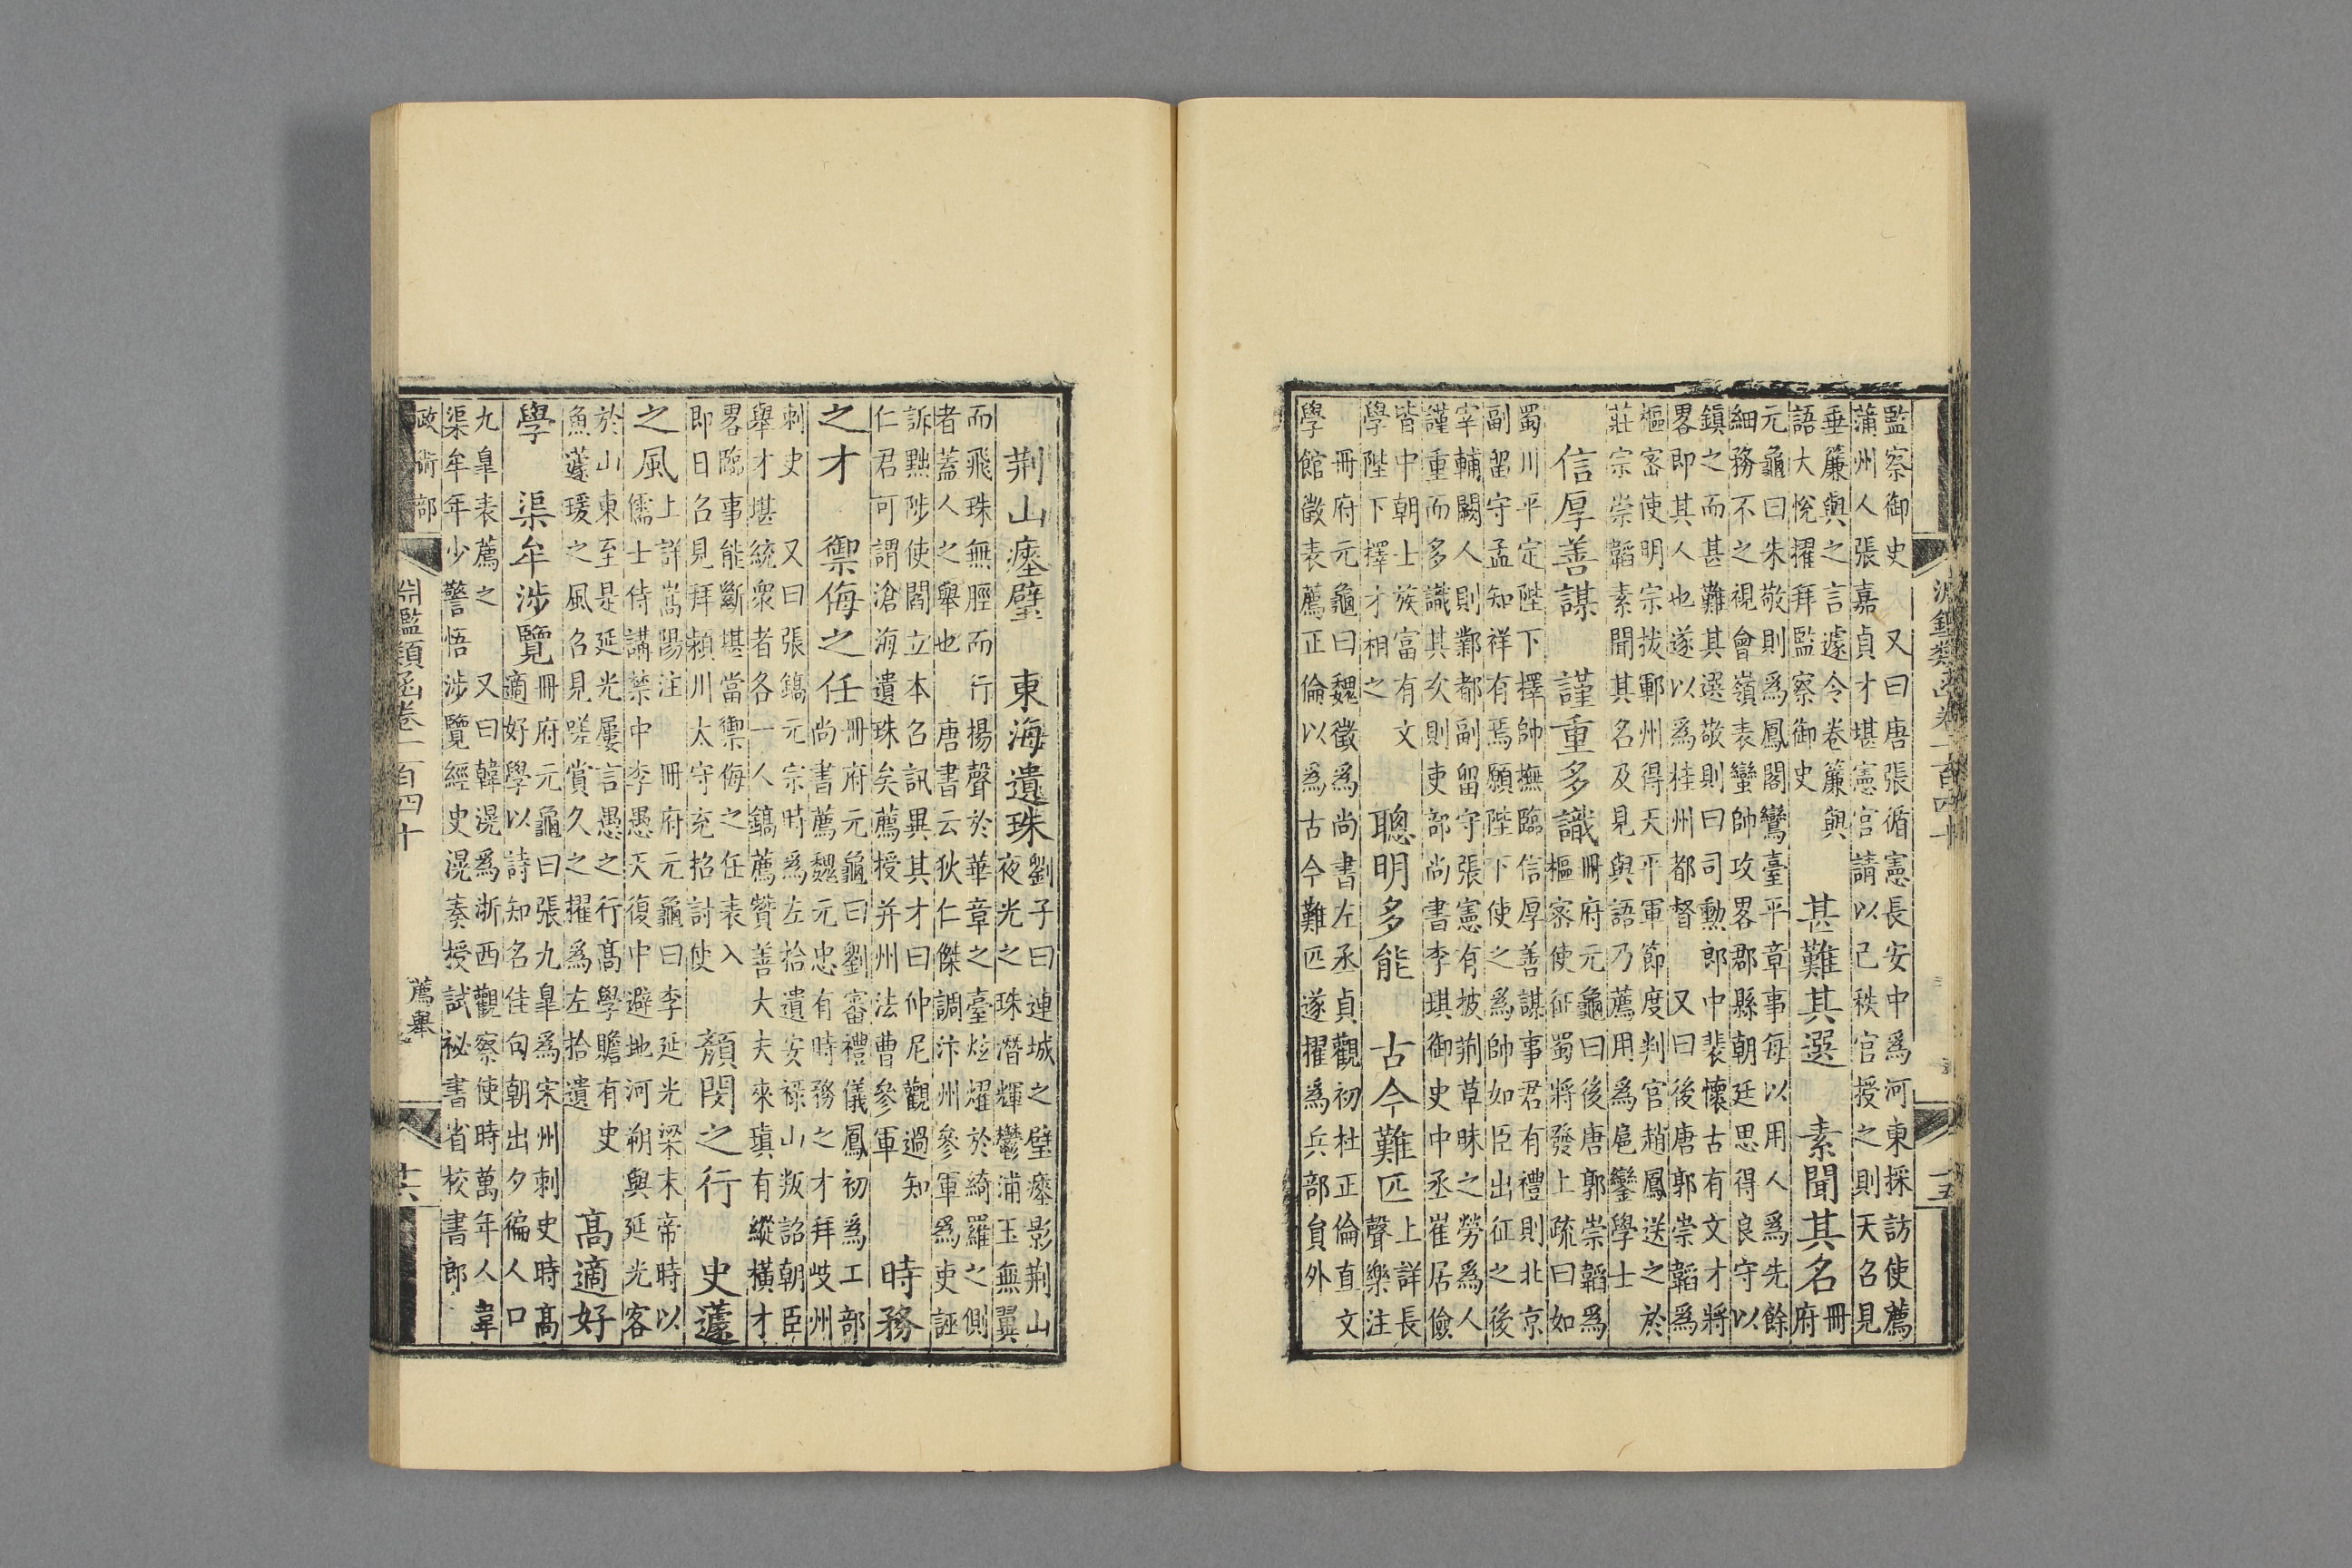 監察御史　又曰唐張循憲長安中為河東採訪使薦
蒲州人張嘉貞才堪憲官請以己秩官授之則天召見
垂簾與之言遽令卷簾與
語大悅擢拜監察御史
甚難其選　素聞其名
冊
府
元龜曰朱敬則為鳳閣鸞臺平章事每以用人為先餘
細務不之視會嶺表蠻帥攻畧郡縣朝廷思得良守以
鎮之而甚難其選敬則曰司勳郎中裴懷古有文才將
畧即其人也遂以為桂州都督　又曰後唐郭崇韜為
樞密使明宗拔鄆州得天平軍節度判官趙鳳送之於
莊宗崇韜素聞其名及見與語乃薦用為扈鑾學士
信厚善謀　謹重多識
冊府元龜曰後唐郭崇韜為
樞密使征蜀將發上疏曰如
蜀川平定陛下擇帥撫臨信厚善謀事君有禮則北京
副留守孟知祥有焉願陛下使之為帥如臣出征之後
宰輔闕人則鄴都副留守張憲有披荊草昧之勞為人
謹重而多識其次則吏部尚書李琪御史中丞崔居儉
皆中朝士族富有文
學陛下擇才相之
聰明多能　古今難匹
上詳長
聲樂注
冊府元龜曰魏徵為尚書左丞貞觀初杜正倫直文
學館徵表薦正倫以為古今難匹遂擢為兵部員外
淵鑑類函卷一百四十
十五
荆山瘞璧　東海遺珠
劉子曰連城之璧瘞影荆山
夜光之珠潛輝鬱浦玉無翼
而飛珠無脛而行揚聲於華章之臺炫燿於綺羅之側
者蓋人之舉也　唐書云狄仁傑調汴州參軍為吏誣
訴黜陟使閻立本召訊異其才曰仲尼觀過知
仁君可謂滄海遺珠矣薦授并州法曹參軍
時務
之才　禦侮之任
冊府元龜曰劉審禮儀鳳初為工部
尚書薦魏元忠有時務之才拜岐州
刺史　又曰張鎬元宗時為左拾遺安祿山叛詔朝臣
舉才堪統衆者各一人鎬薦贊善大夫來瑱有縱橫才
畧臨事能斷堪當禦侮之任表入
即日召見拜潁川太守充招討使
顏閔之行　史蘧
之風
上詳嵩陽注　冊府元龜曰李延光梁末帝時以
儒士侍講禁中李愚天復中避地河朔與延光客
於山東至是延光屢言愚之行高學贍有史
魚蘧瑗之風召見嗟賞久之擢為左拾遺
高適好
學　渠牟涉覽
冊府元龜曰張九臯為宋州刺史時高
適好學以詩知名佳句朝出夕徧人口
九臯表薦之　又曰韓滉為浙西觀察使時萬年人韋
渠牟年少警悟涉覽經史滉奏授試祕書省校書郎
政術部
淵鑑類函卷一百四十
薦舉
十六